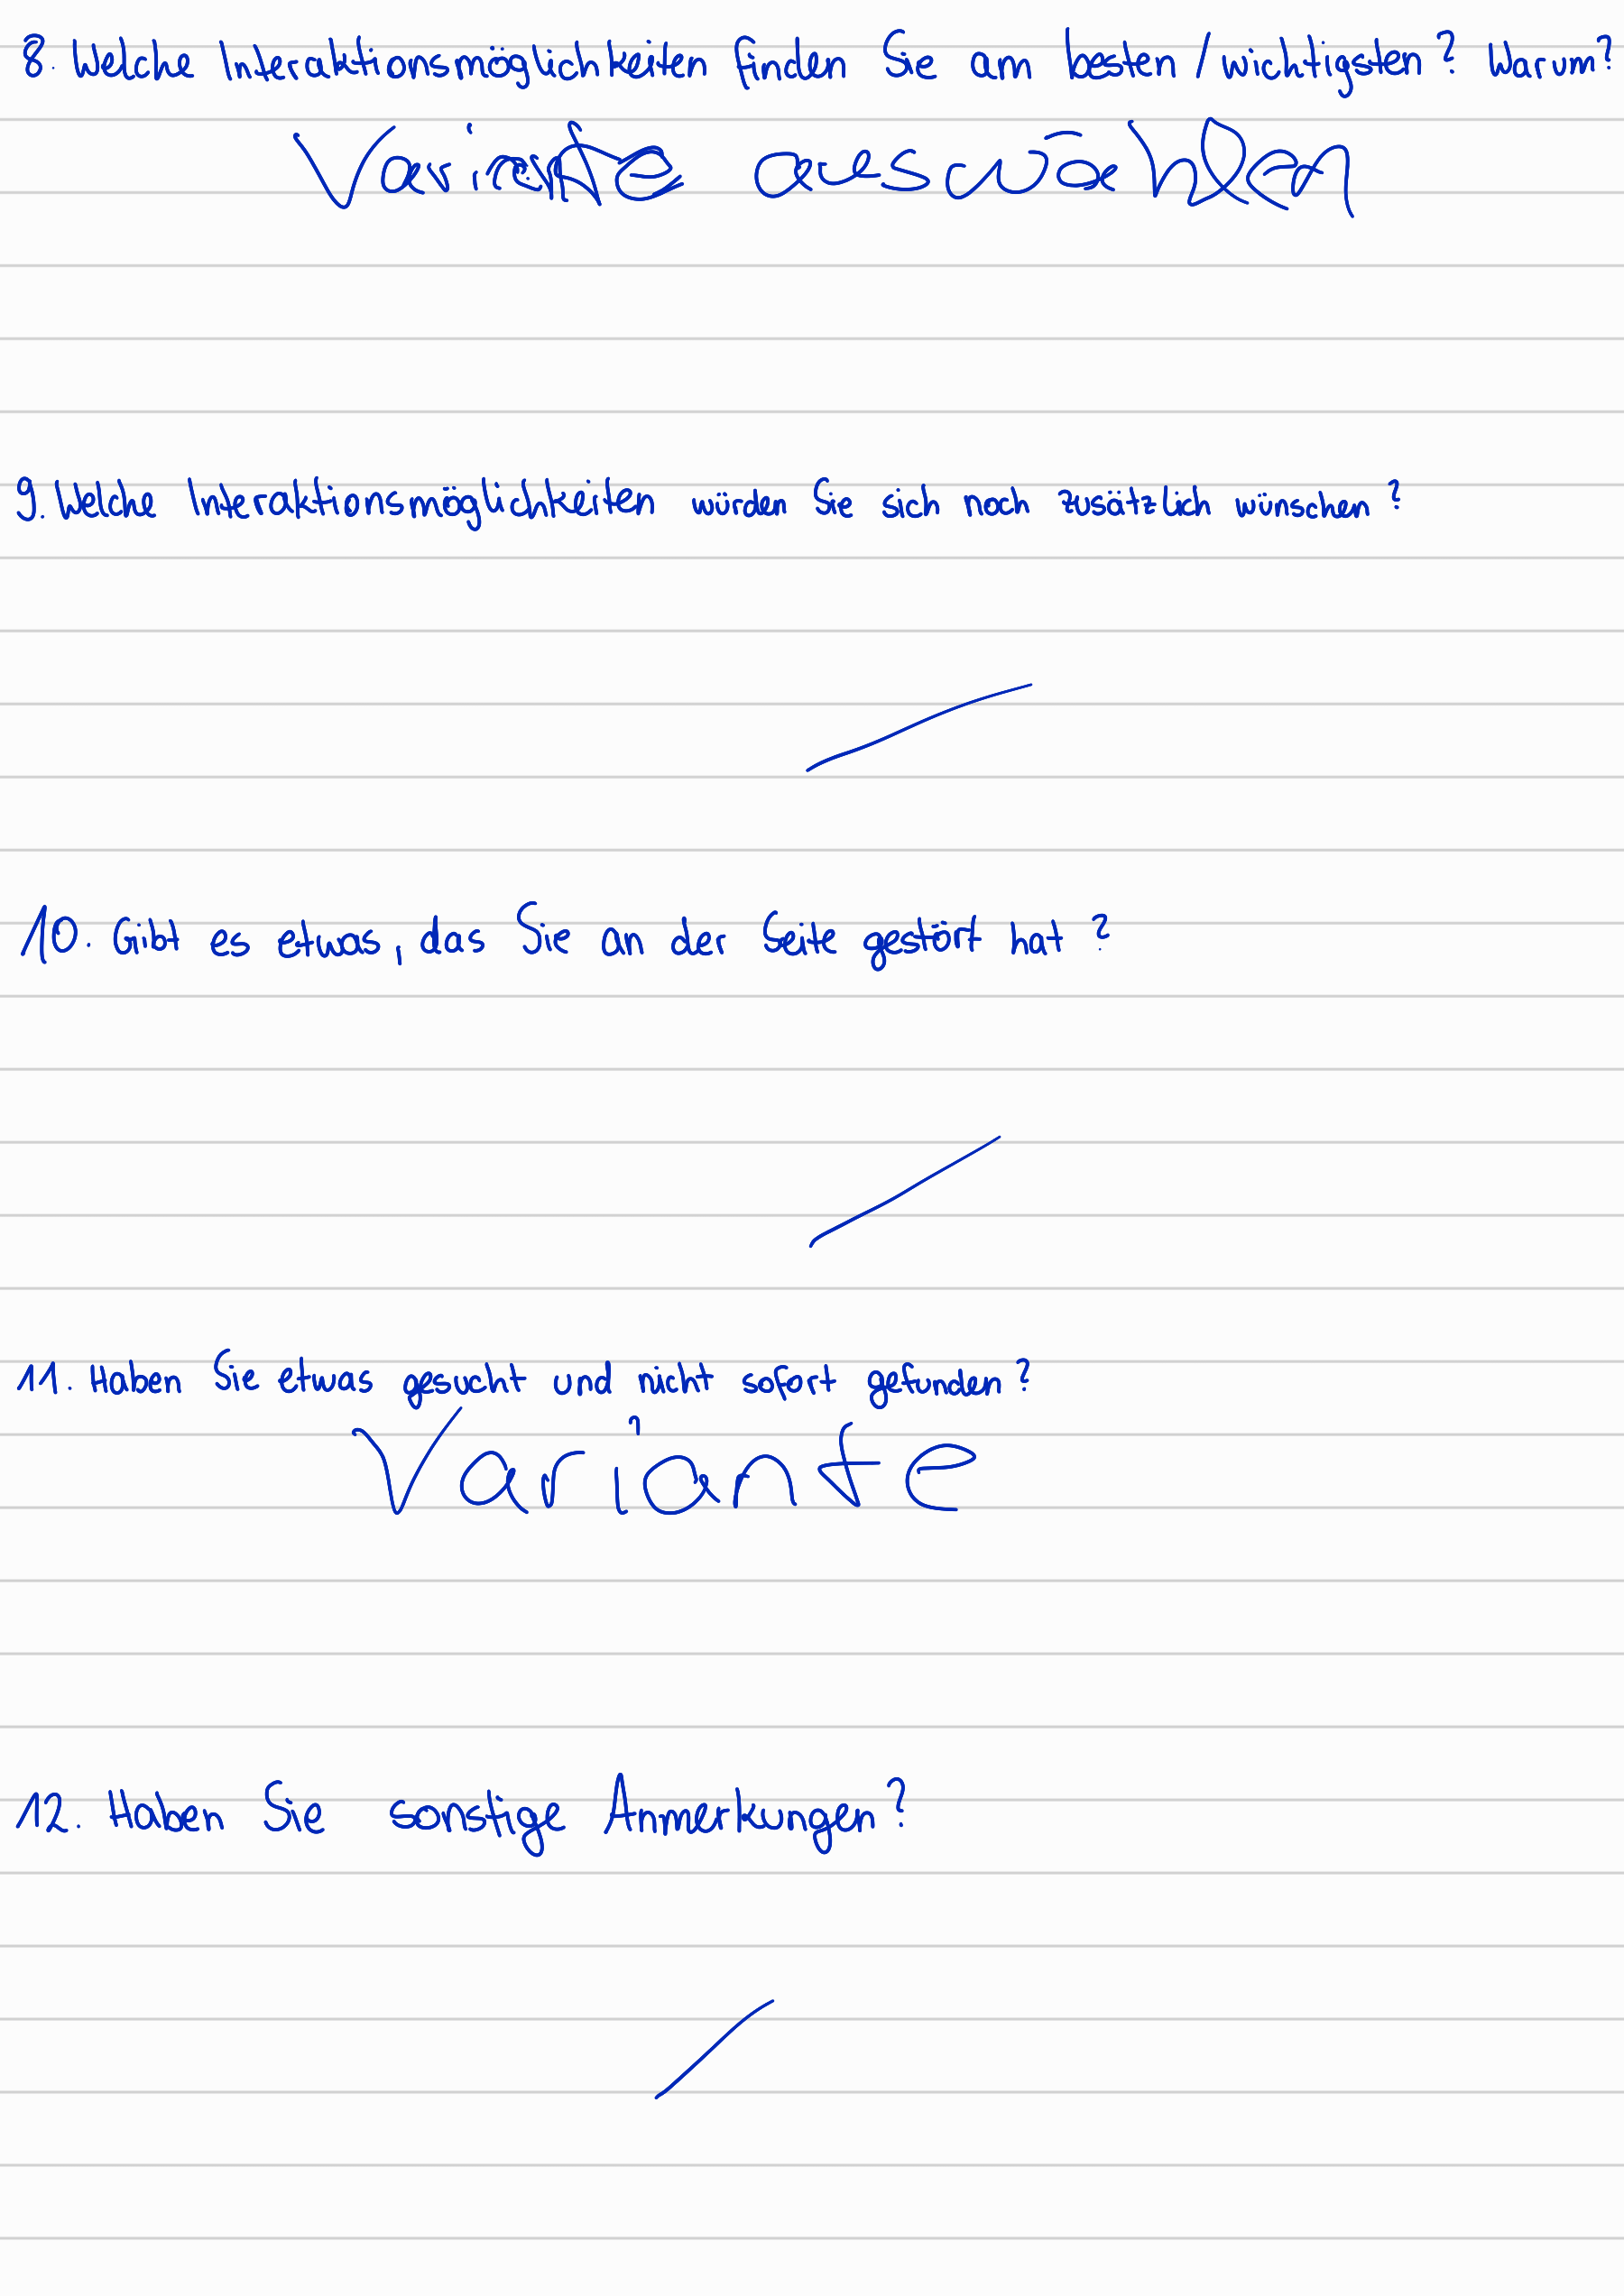 8. Welche Interaktionsmöglichkeiten finden Sie am besten / wichtigsten? Warum?
Variante auswählen
9. Welche Interaktionsmöglichkeiten würden Sie sich noch zusätzlich wünschen?
10. Gibt es etwas, das Sie an der Seite gestört hat?
11. Haben Sie etwas gesucht und nicht sofort gefunden?
Variante
12. Haben Sie sonstige Anmerkungen?